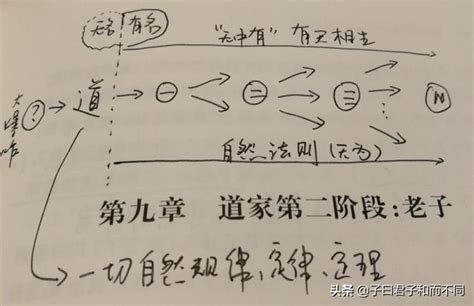 无名 有名 "无中有" 有无相生
大爆炸 ? → 道 → 一 二 三 N
自然法则(无为)
第九章 道家第二阶段:老子
一切自然规律、定律、定理
头条 @子曰君子和而不同